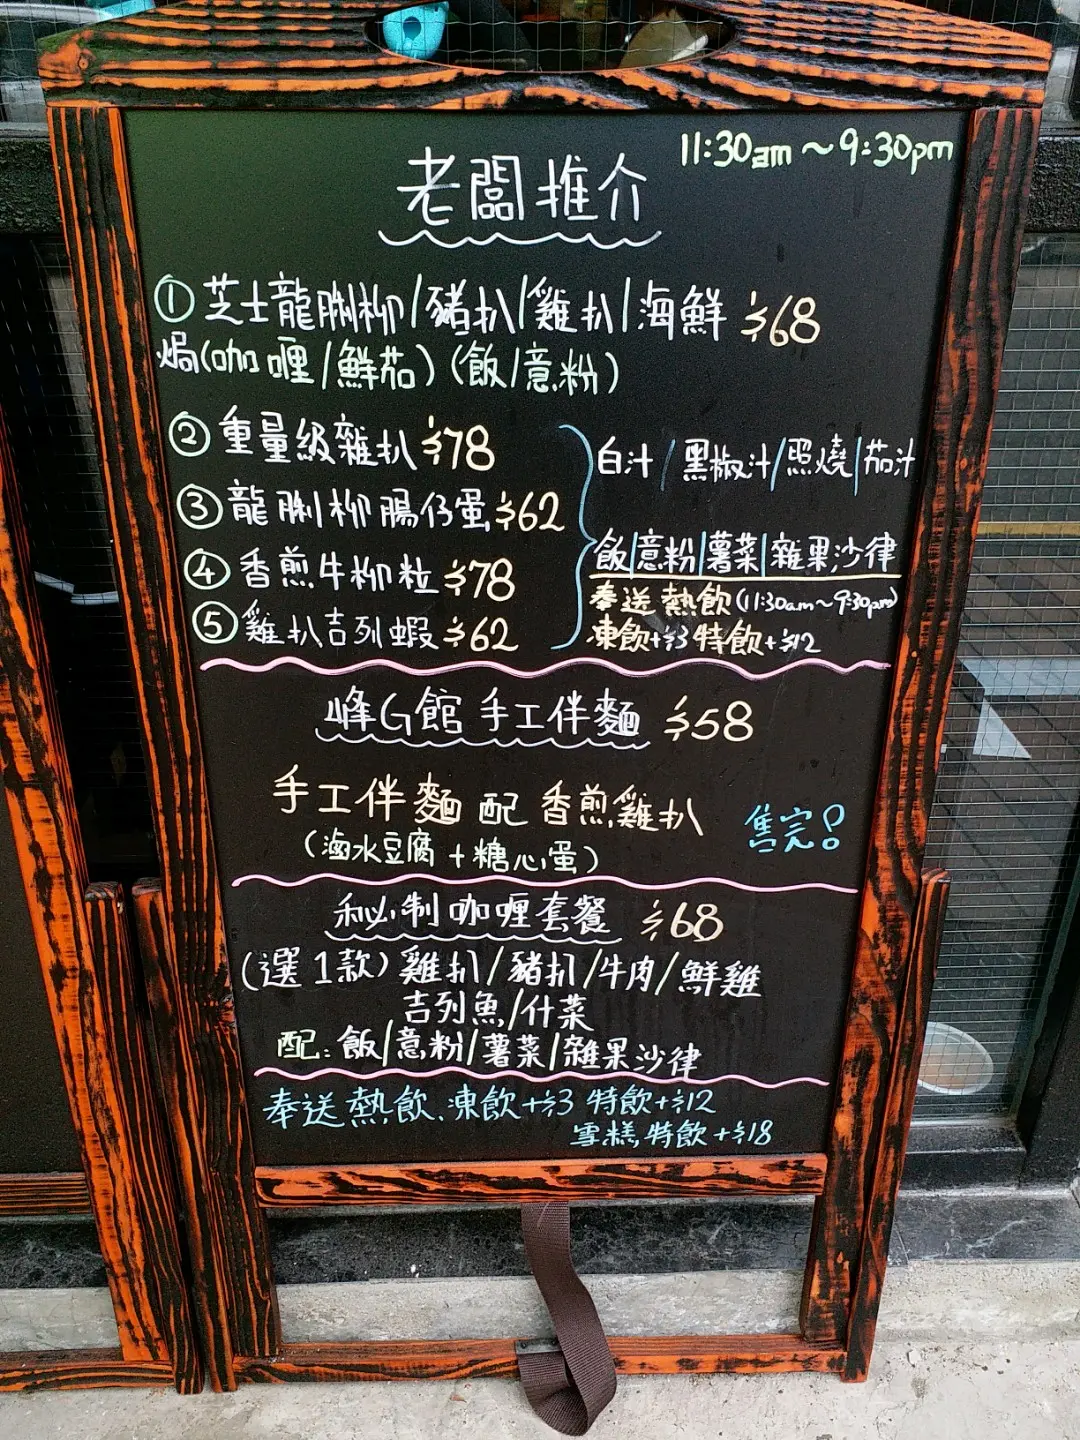 11:30am～9:30pm
老闆推介
①芝士龍脷柳/豬扒/雞扒/海鮮 $68
焗(咖喱/鮮茄)(飯/意粉)
②重量級雜扒 $78
③龍脷柳腸仔蛋 $62
④香煎牛柳粒 $78
⑤雞扒吉列蝦 $62
白汁/黑椒汁/照燒/茄汁
飯/意粉/薯菜/雜果沙律
奉送熱飲(11:30am～9:30pm)
凍飲+$3 特飲+$12
峰G館手工伴麵 $58
手工伴麵配香煎雞扒
(滷水豆腐+糖心蛋)
售完!
秘制咖喱套餐 $68
(選1款)雞扒/豬扒/牛肉/鮮雞
吉列魚/什菜
配:飯/意粉/薯菜/雜果沙律
奉送熱飲、凍飲+$3 特飲+$12
雪糕特飲+$18